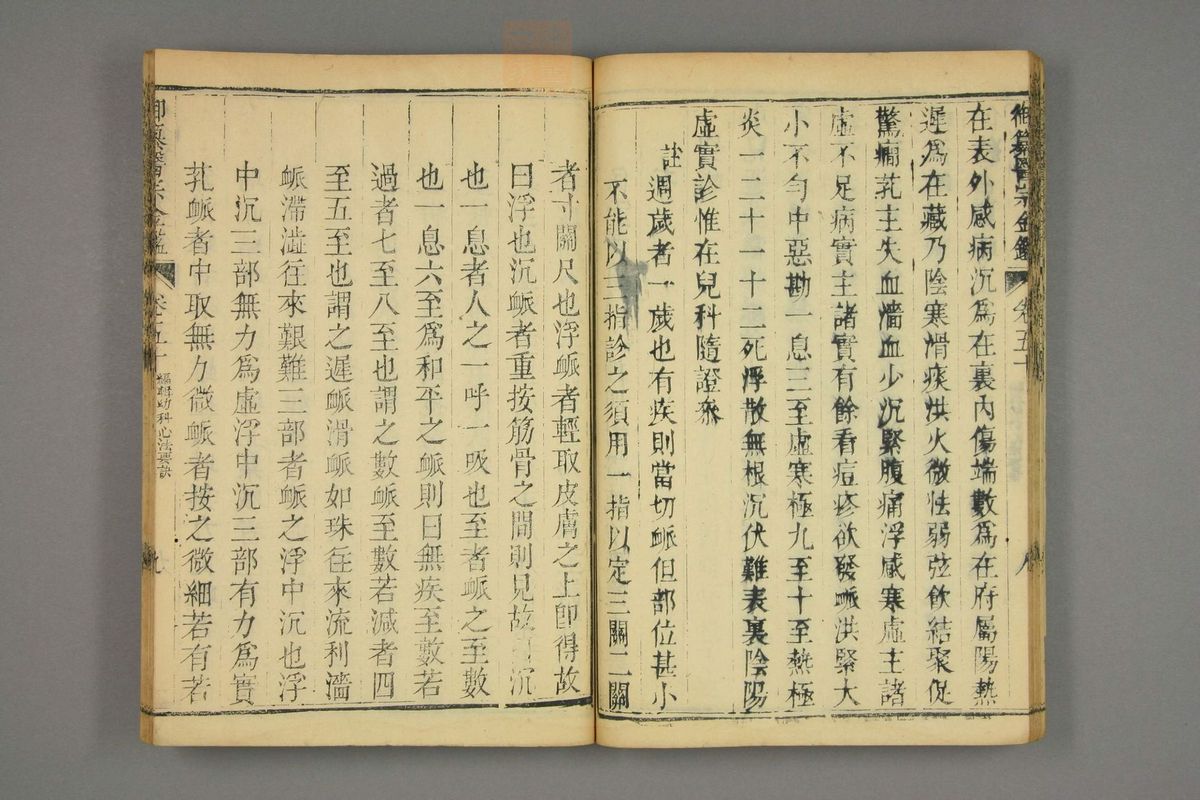 御纂醫宗金鑑 卷五十 八
在表外感病沉爲在裏內傷端數爲在府屬陽熱
遲爲在藏乃陰寒滑痰洪火微怯弱弦飲結聚促
驚癎芤主失血濇血少沉緊腹痛浮感寒虛主諸
虛不足病實主諸實有餘看痘疹欲發脈洪緊大
小不勻中惡勘一息三至虛寒極九至十至熱極
炎一二十一十二死浮散無根沉伏難表裏陰陽
虛實診惟在兒科隨證叅
註週歲者一歲也有疾則當切脈但部位甚小
不能以三指診之須用一指以定三關二關
者寸關尺也浮脈者輕取皮膚之上卽得故
曰浮也沉脈者重按筋骨之間則見故曰沉
也一息者人之一呼一吸也至者脈之至數
也一息六至爲和平之脈則曰無疾至數若
過者七至八至也謂之數脈至數若減者四
至五至也謂之遲脈滑脈如珠往來流利濇
脈滯澁往來艱難三部者脈之浮中沉也浮
中沉三部無力爲虛浮中沉三部有力爲實
芤脈者中取無力微脈者按之微細若有若
御纂醫宗金鑑 卷五十 編輯幼科心法要訣 九